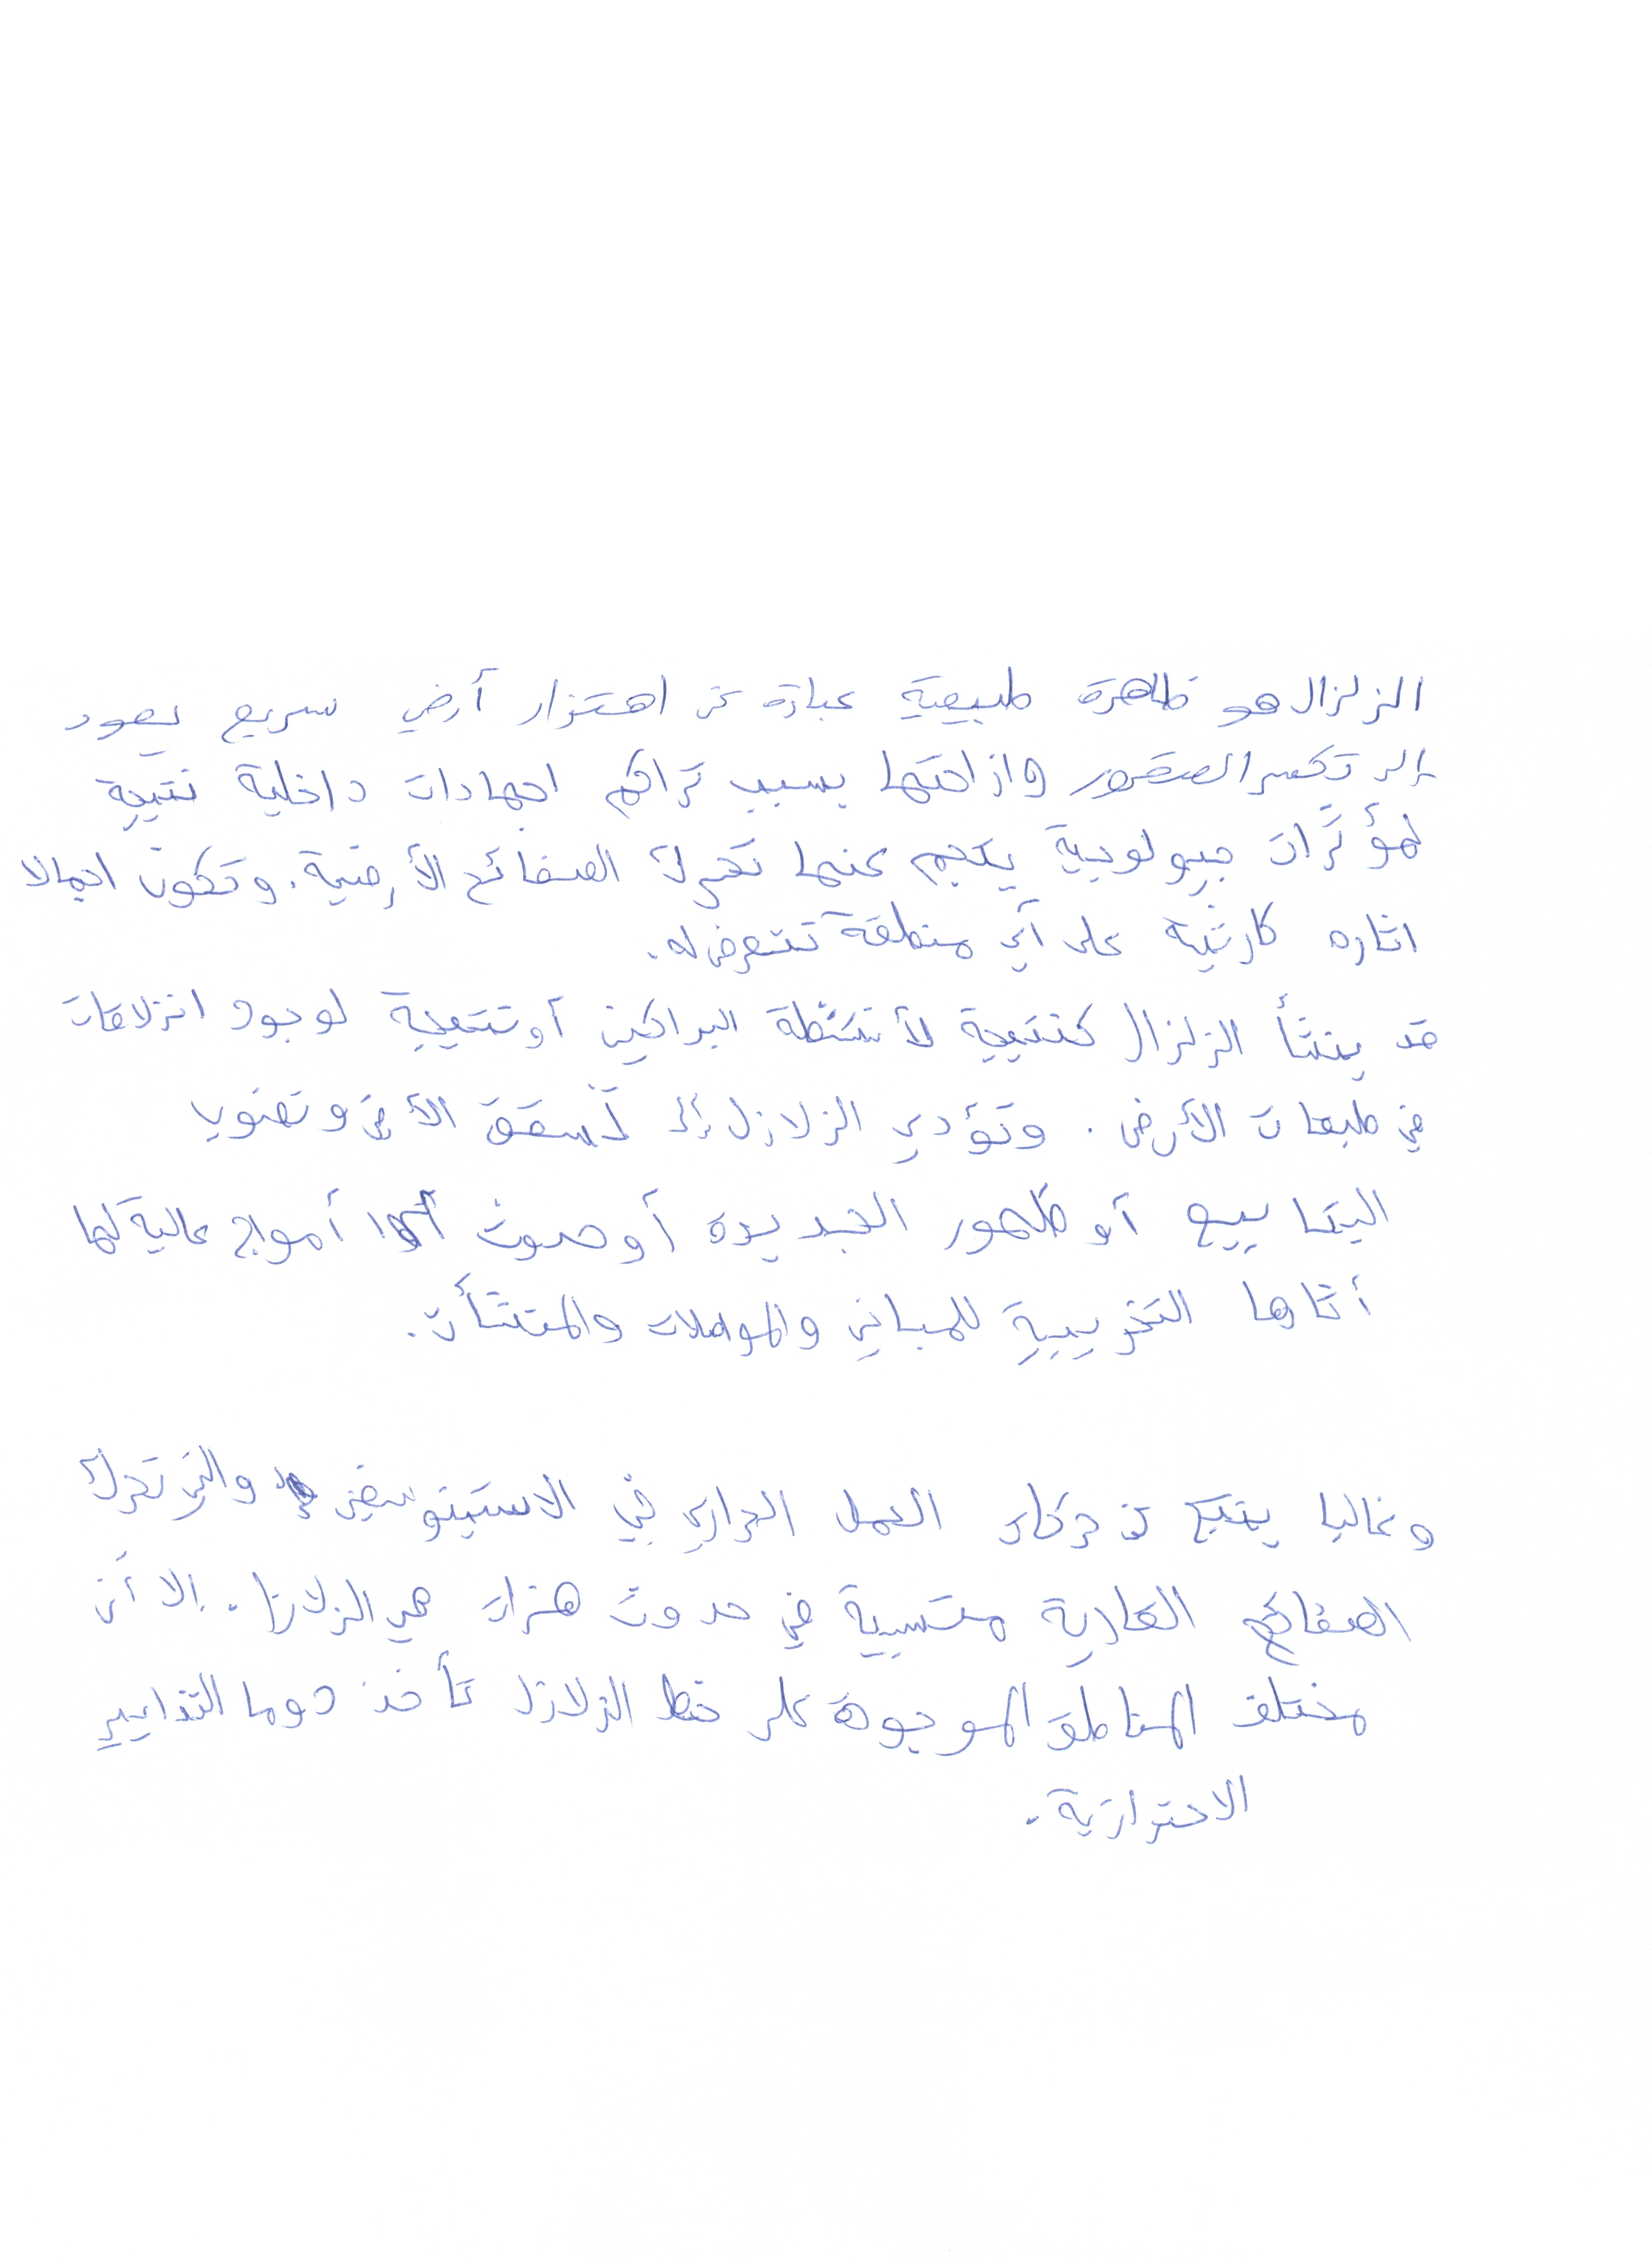 الزلزال هو ظاهرة طبيعية عبارة عن اهتزاز أرضي سريع يعود
إلى تكسر الصخور وازاحتها بسبب تراكم اجهادات داخلية نتيجة
لمؤثرات جيولوجية ينجم عنها تحرك الصفائح الأرضية. وتكون اجمالا
اثاره كارثية على أي منطقة تتعرض له.
قد ينشأ الزلزال كنتيجة لأنشطة البراكين أو نتيجة لوجود انزلاقات
في طبقات الأرض. وتؤدي الزلازل إلى تشقق الأرض ونضوب
الينابيع أو ظهور الجديدة أو حدوث أمواج عالية لها
أثارها التخريبية للمباني والمواصلات والمنشأت.
وغالبا ينتج عن حركات الحمل الحراري في الاستينوسفير والتي تحرك
الصفائح القارية متسببة في حدوث هزات هي الزلازل. إلا أن
مختلف المناطق الموجودة على خط الزلازل تأخذ دوما التدابير
الاحترازية.